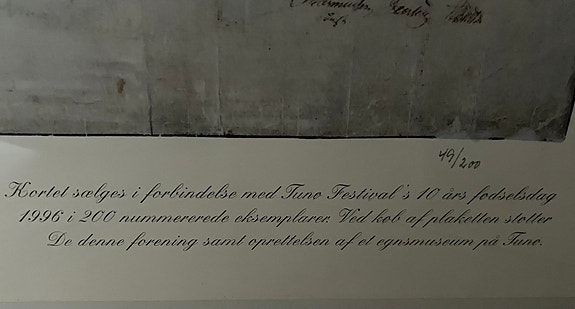 49/200
Kortet sælges i forbindelse med Tuno Festival's 10 års fodselsdag
1996 i 200 nummererede eksemplarer. Ved kob af plaketten stotter
De denne forening samt oprettelsen af et egnsmuseum på Tuno.